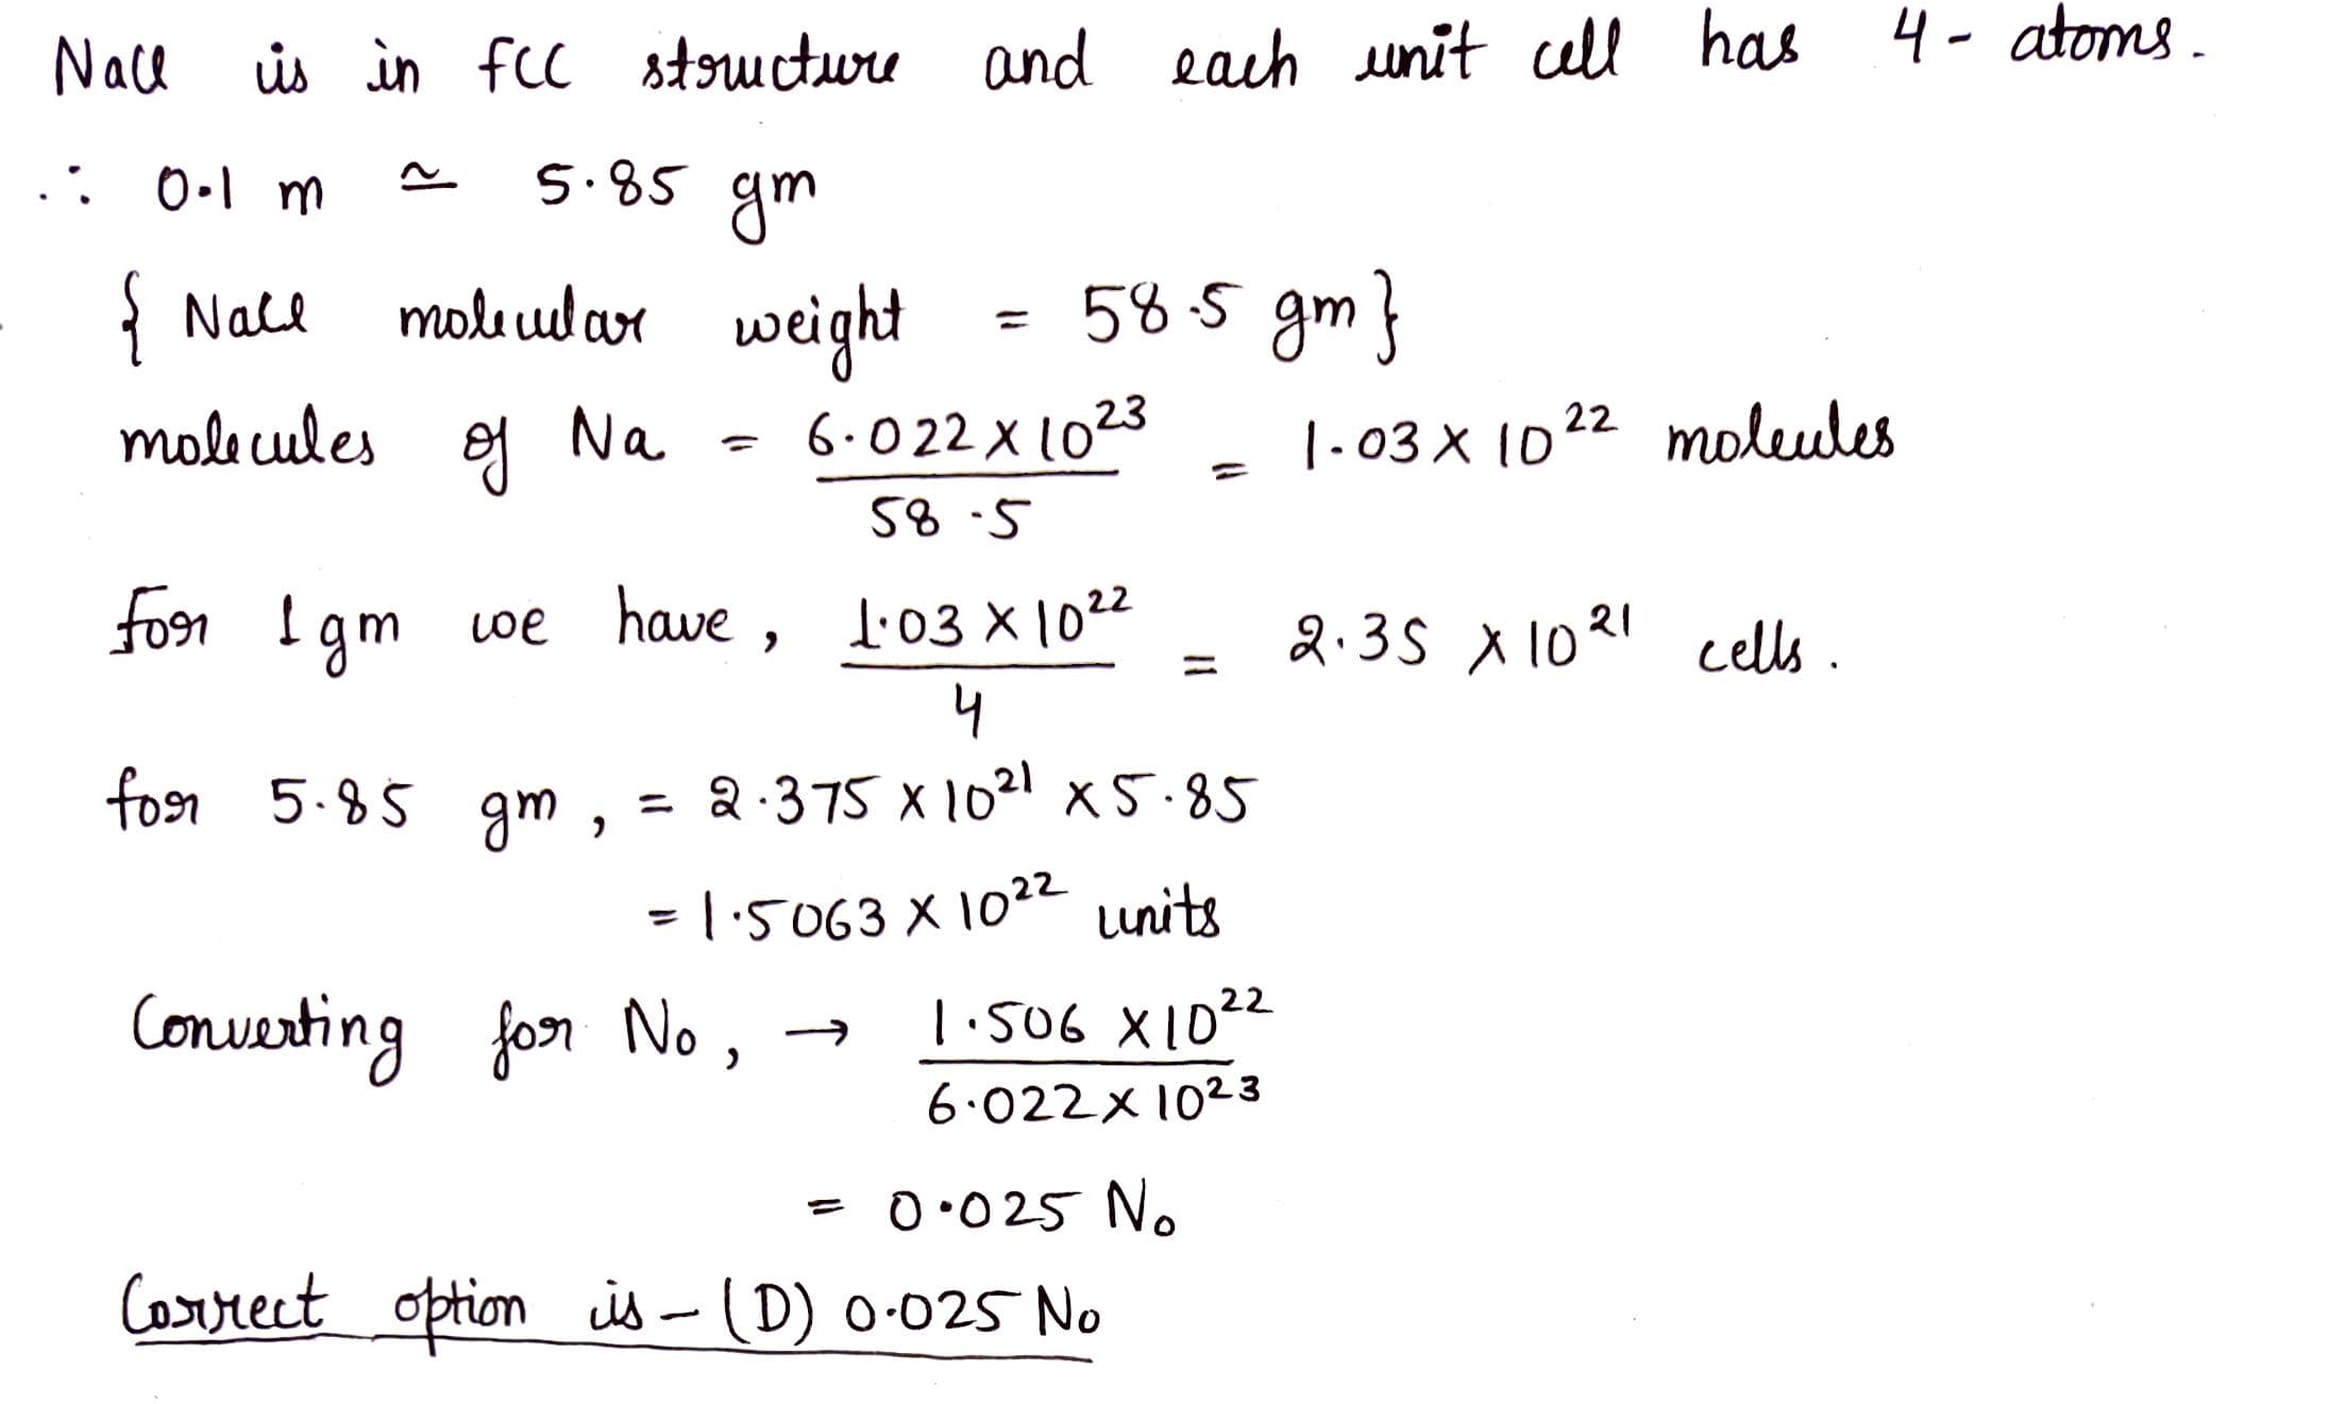 NaCl is in fcc structure and each unit cell has 4- atoms.
∴ 0.1 m ≃ 5.85 gm
{ NaCl molecular weight = 58.5 gm}
molecules of Na = 6.022 X 10^23 / 58.5 = 1.03 X 10^22 molecules
for 1 gm we have, 1.03 X 10^22 / 4 = 2.35 X 10^21 cells.
for 5.85 gm, = 2.375 X 10^21 X 5.85
= 1.5063 X 10^22 units
Converting for No, → 1.506 X 10^22 / 6.022 X 10^23
= 0.025 No
Correct option is - (D) 0.025 No